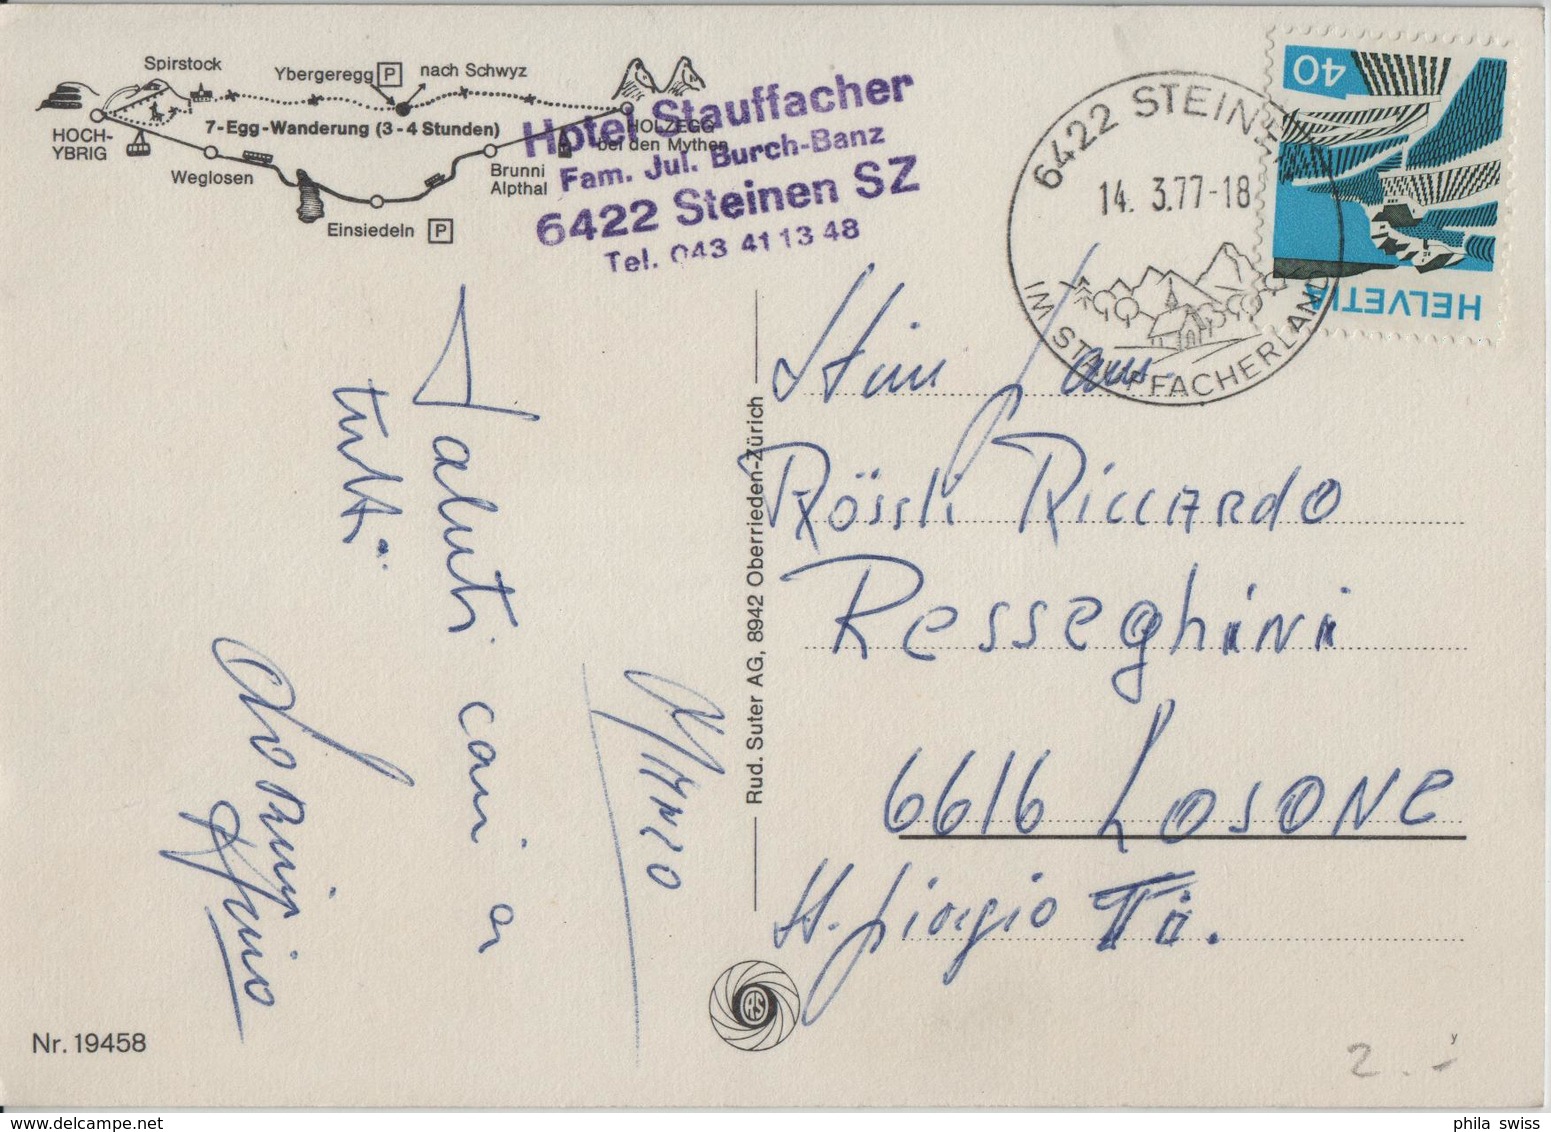 Spirstock
Ybergeregg P nach Schwyz
HOCH-
YBRIG
7-Egg-Wanderung (3-4 Stunden)
HOLZEGG
bei den Mythen
Weglosen
Brunni
Alpthal
Einsiedeln P
Hotel Stauffacher
Fam. Jul. Burch-Banz
6422 Steinen SZ
Tel. 043 41 13 48
6422 STEINEN
14. 3.77-18
IM STAUFFACHERLAND
40
HELVETIA
Saluti cari a
tutti
Rud. Suter AG, 8942 Oberrieden-Zürich
Rössli Riccardo
Resseghini
6616 Losone
S. Giorgio Ti.
Nr. 19458
RS
2.-
y
phila swiss